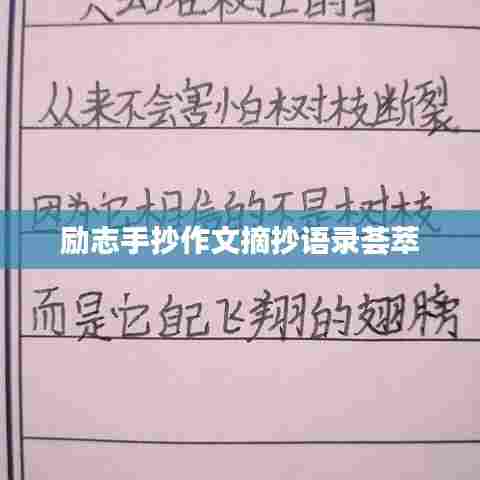 在树枝上的
从来不会害怕树枝断裂
因为它相信的不是树枝
励志手抄作文摘抄语录荟萃
而是它自己飞翔的翅膀